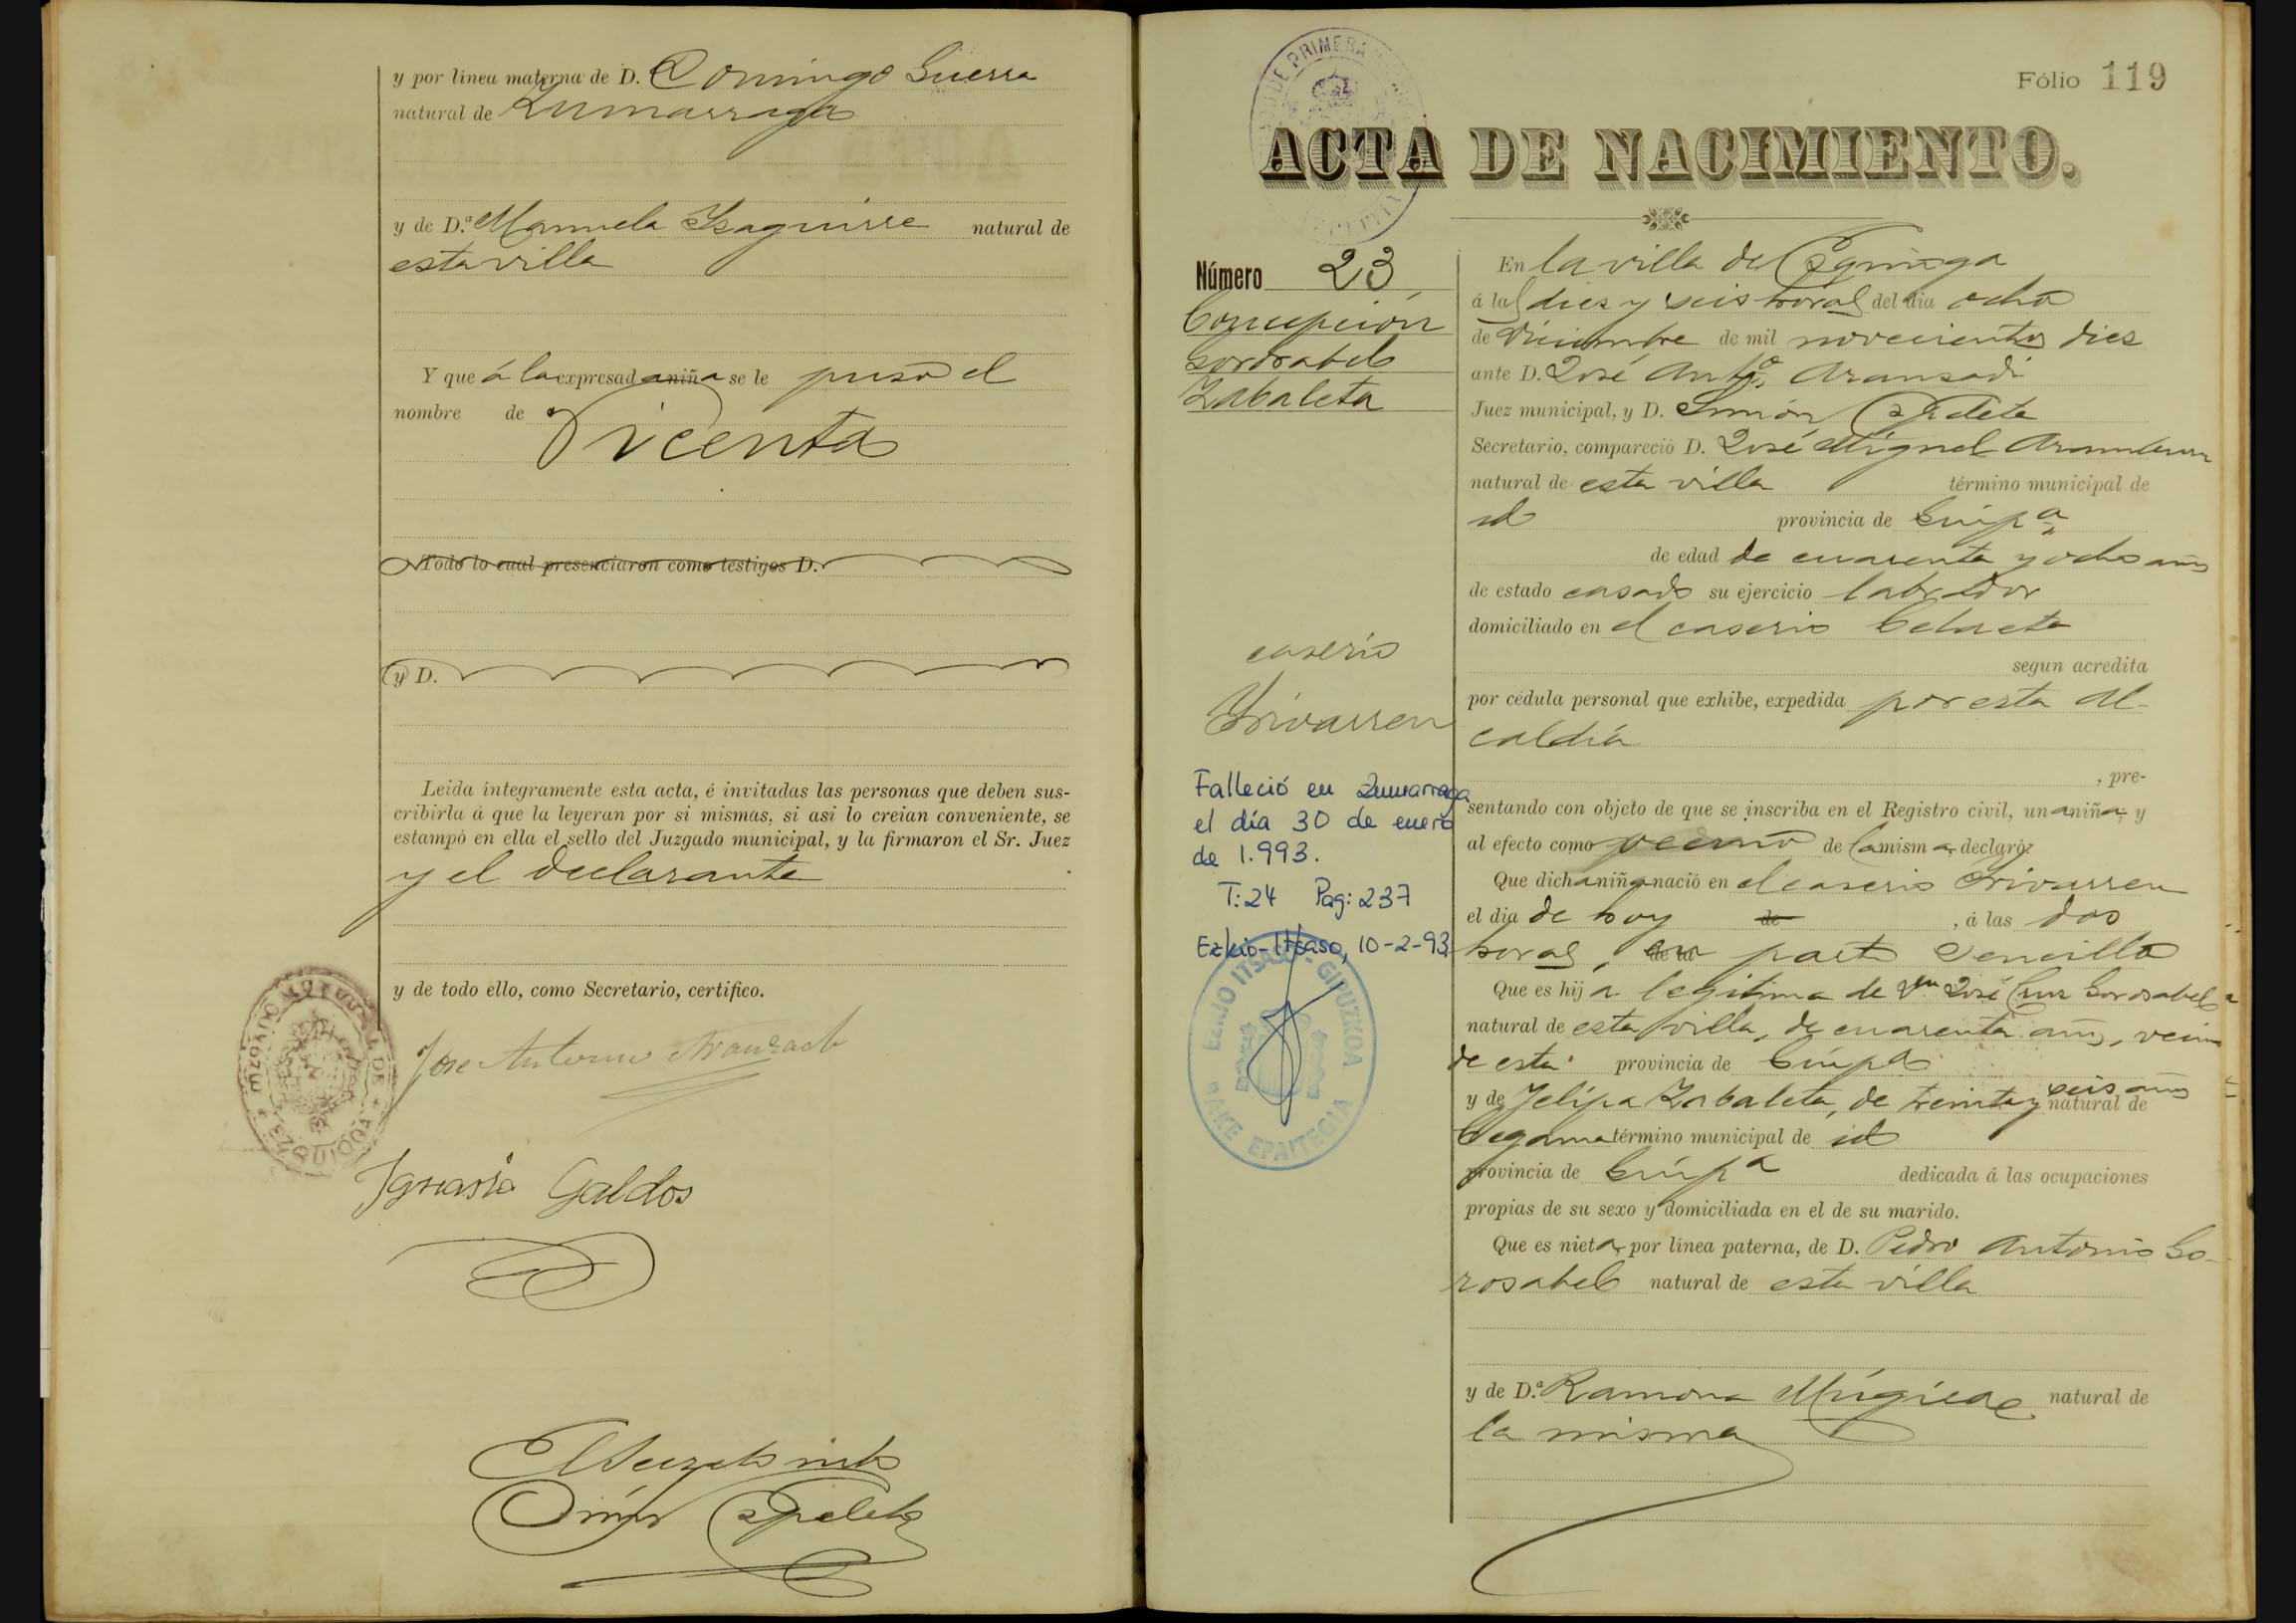 y por línea materna de D. Domingo Guerra
natural de Zumarraga
y de D.ª Manuela Izaguirre natural de
esta villa
Y que á la expresada niña se le puso el
nombre de
Vicenta
Todo lo cual presenciaron como testigos D.
y D.
Leida integramente esta acta, é invitadas las personas que deben sus-
cribirla á que la leyeran por si mismas, si asi lo creian conveniente, se
estampó en ella el sello del Juzgado municipal, y la firmaron el Sr. Juez
y el declarante
y de todo ello, como Secretario, certifico.
José Antonio Aranzadi
Ignasio Galdos
El Secretario
Simón
Fólio 119
ACTA DE NACIMIENTO.
Número 23
Concepción
Gorosabel
Zabaleta
caserío
Yrivarren
Falleció en Zumarraga
el día 30 de enero
de 1.993.
T: 24 Pag: 237
Ezkio-Itsaso, 10-2-93
EZKIO ITSASO - GIPUZKOA
BAKE EPAITEGIA
En la villa de Ezquioga
á las diez y seis horas del dia ocho
de Diciembre de mil novecientos diez
ante D. José Antº. Aranzadi
Juez municipal, y D. Simón
Secretario, compareció D. José Miguel Aramburu
natural de esta villa término municipal de
id provincia de Guipª
de edad de cuarenta y ocho años
de estado casado su ejercicio labrador
domiciliado en el caserio
segun acredita
por cédula personal que exhibe, expedida por esta Al-
caldía
, pre-
sentando con objeto de que se inscriba en el Registro civil, una niña; y
al efecto como vecino de la misma, declaró:
Que dicha niña nació en el caserio Yrivarren
el dia de hoy de , á las dos
horas, de parto sencillo
Que es hija legitima de Dn José Cruz Gorosabel
natural de esta villa, de cuarenta años, vecino
de esta provincia de Guipª
y de Felipa Zabaleta, de treinta y seis años natural de
Cegama término municipal de id
provincia de Guipª dedicada á las ocupaciones
propias de su sexo y domiciliada en el de su marido.
Que es nieta, por línea paterna, de D. Pedro Antonio Go-
rosabel natural de esta villa
y de D.ª Ramona Múgica natural de
la misma